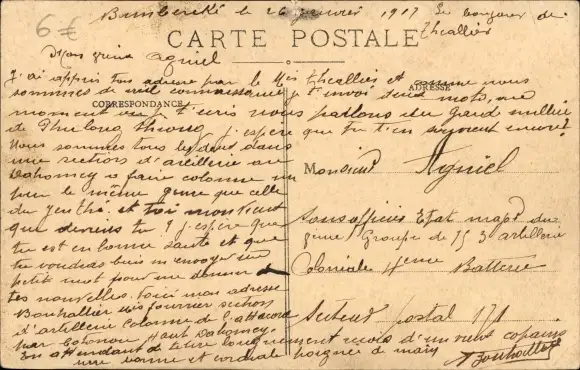 6€
Bimbereké le 26 janvier 1917 Le bonjour de
Thcallier
CARTE POSTALE
Mon Agniel
J'ai appris ton adresse par le Mis thcallier et comme nous
sommes de connaissance je t'envoi deux mots, au
ADRESSE
CORRESPONDANCE
moment ou je t'ecris nous parlons du
de j'espère que tu t'en souvient encore.
Nous sommes tous les deux dans
une section d'artillerie au
Dahomey a faire colonne un
peu le même genre que celle
du et toi mon vieux
que deviens tu ? j'espère que
tu est en bonne santé et que
tu voudras bien m'envoyer un
petit mot pour me donner de
tes nouvelles. Voici mon adresse
section
d'artillerie Colonne de l'Atacora
par Cotonou Haut Dahomey.
En attendant de te lire longuement reçois d'un vieux copain
une bonne et cordiale poignée de main
Monsieur Agniel
Sous officier Etat major du
Groupe de 75 3e artillerie
Coloniale 4eme Batterie
Secteur postal 171